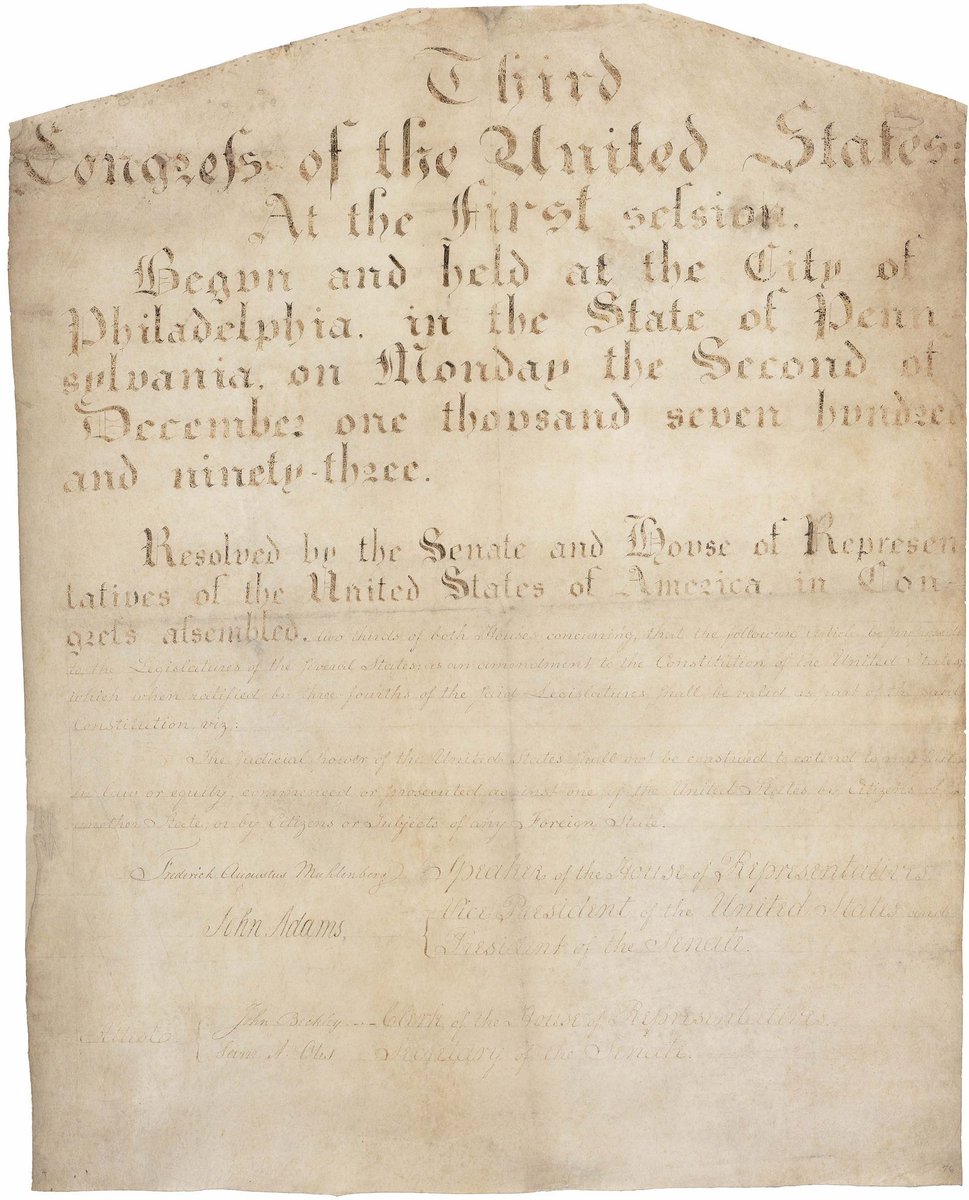 Third
Congreſs of the United States:
At the First seſsion,
Begun and held at the City of
Philadelphia, in the State of Penn-
sylvania, on Monday the Second of
December one thousand seven hundred
and ninety-three.
Resolved by the Senate and House of Represen-
tatives of the United States of America in Con-
greſs aſsembled, two thirds of both Houses concurring, that the following article be
to the Legislatures of the several States, as an amendment to the Constitution of the United States;
which when ratified by three fourths of the said Legislatures shall be valid as part of the said
Constitution, viz:
The Judicial Power of the United States shall not be construed to extend to any suit
in law or equity, commenced or prosecuted against one of the United States by Citizens of
another State, or by Citizens or Subjects of any Foreign State.
Frederick Augustus Muhlenberg Speaker of the House of Representatives
John Adams, Vice President of the United States and
President of the Senate.
Attest, John Beckley -- Clerk of the House of Representatives
Sam. A. Otis Secretary of the Senate.